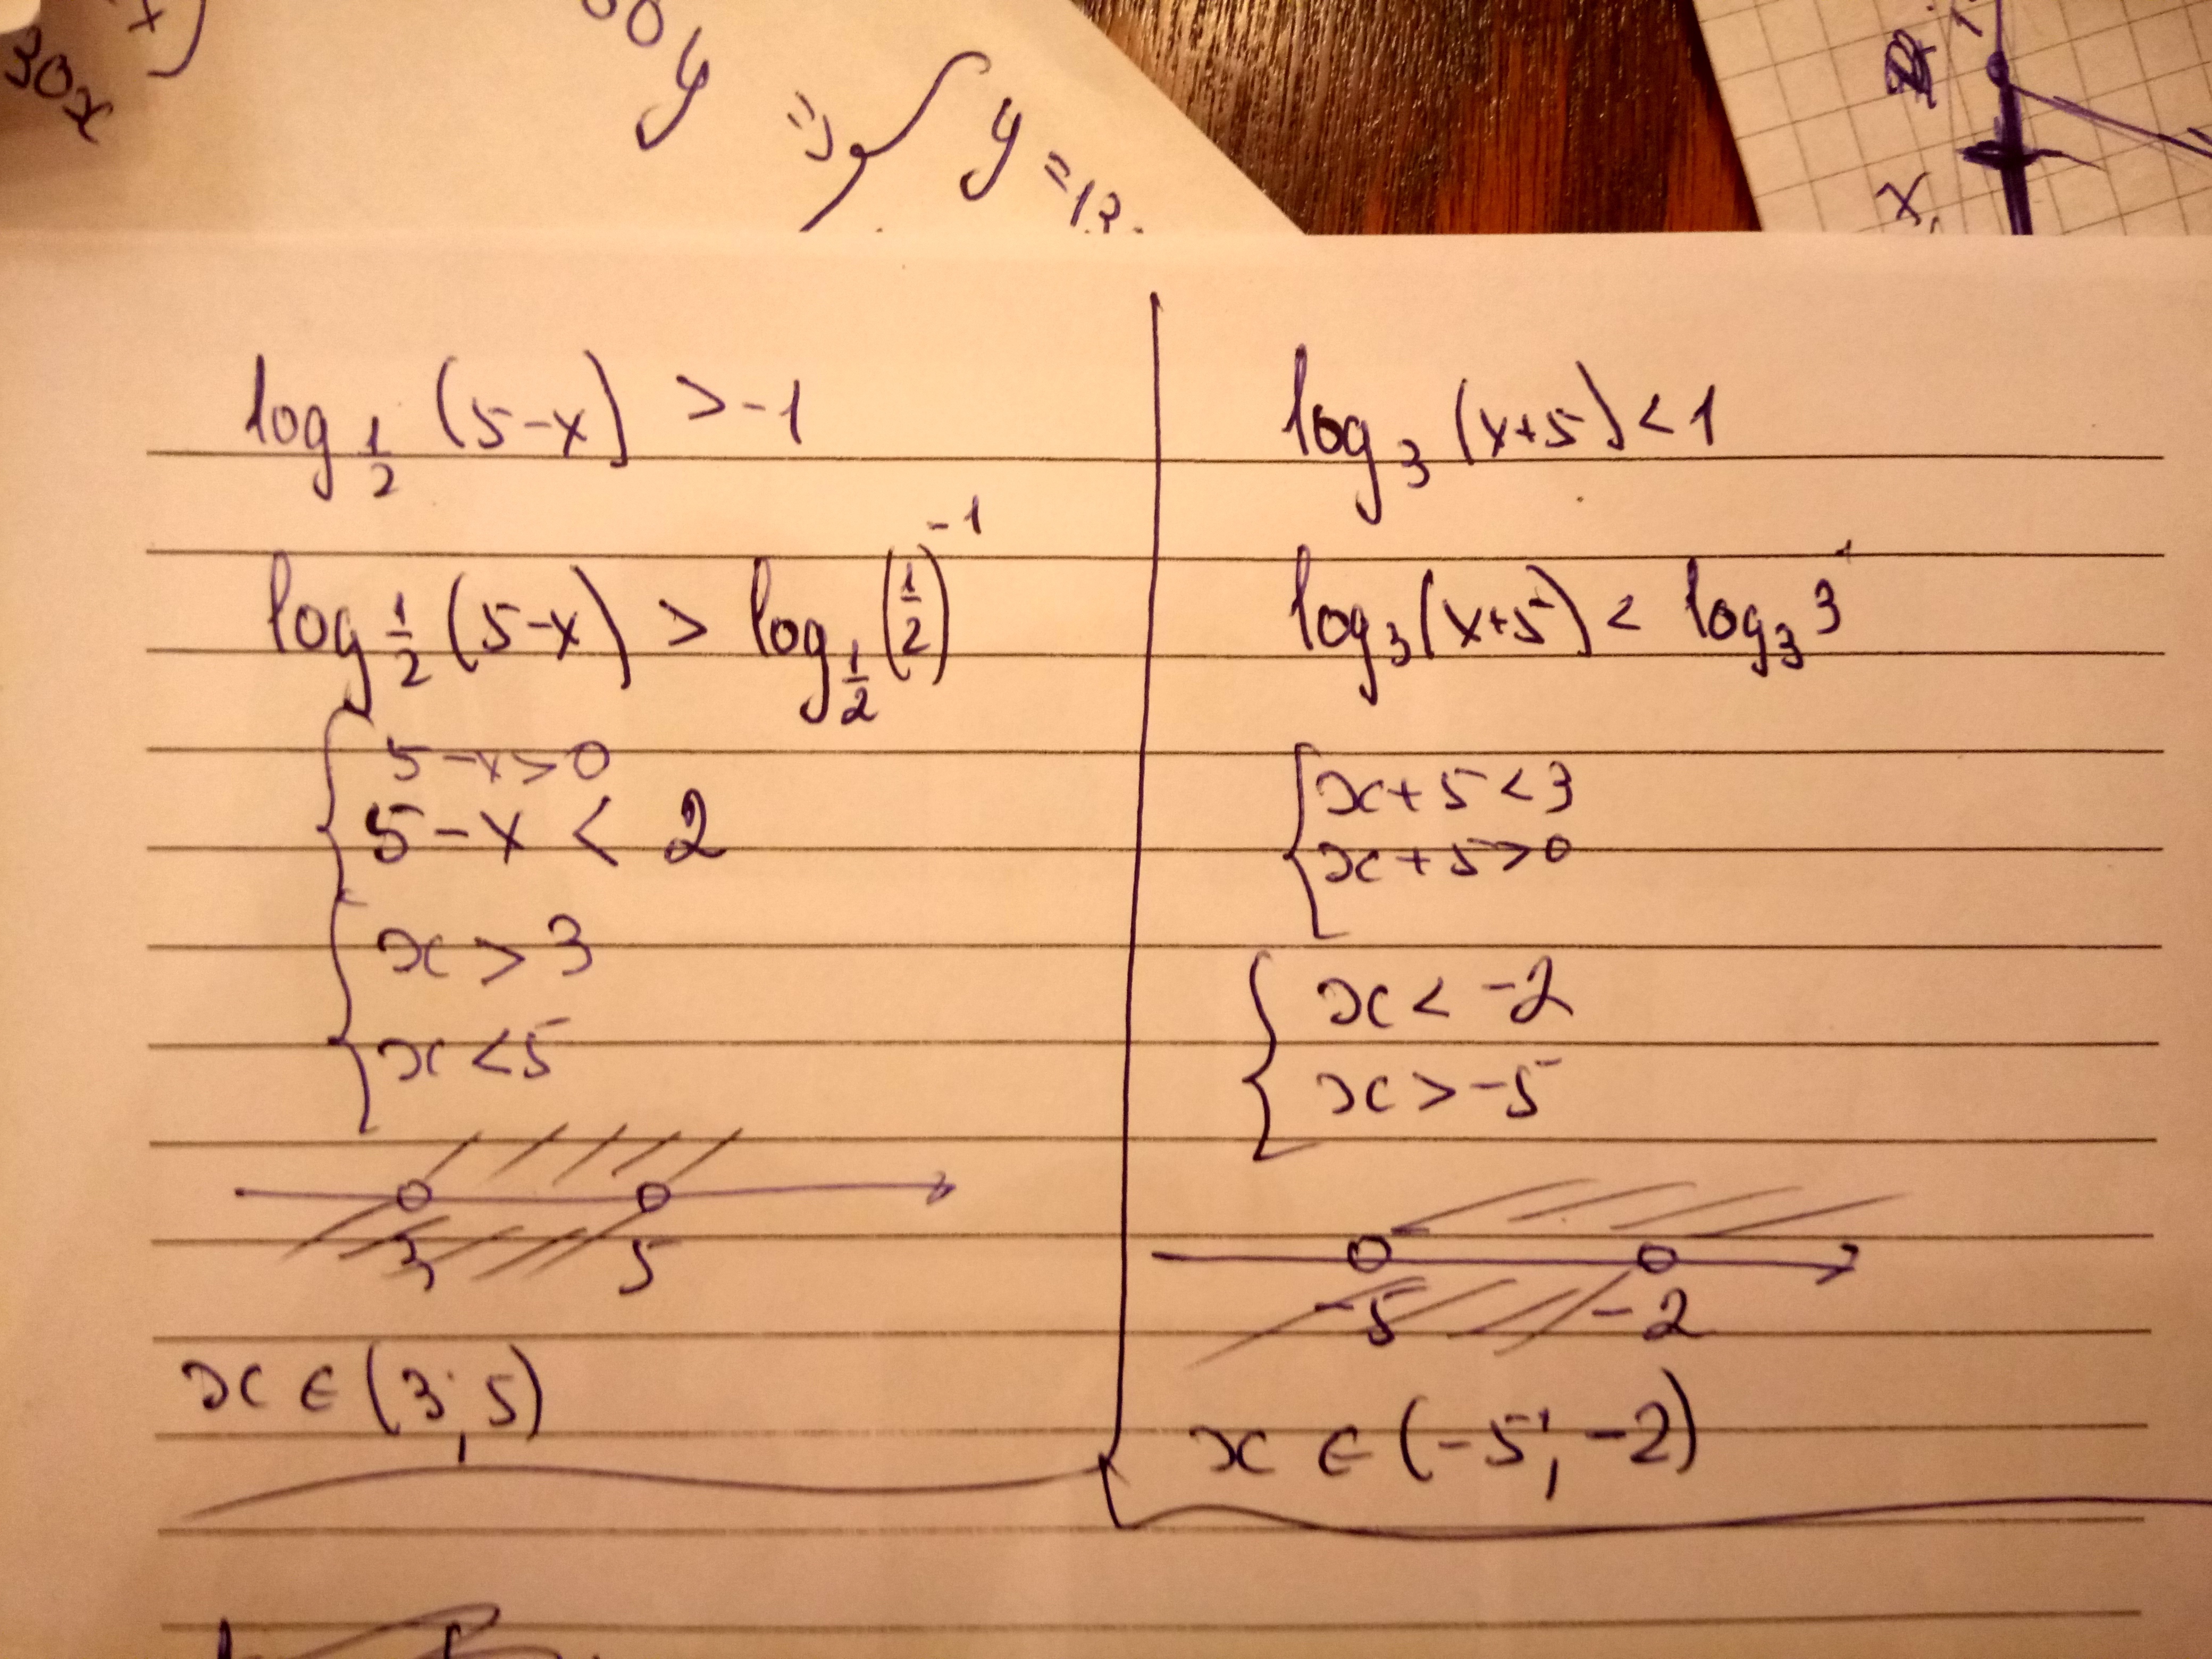 30x
y
y = 12.
x,
log_{1/2} (5-x) > -1
log_{1/2} (5-x) > log_{1/2} (1/2)^{-1}
{ 5-x>0
5-x < 2
{ x > 3
x < 5
3 5
x ∈ (3; 5)
log_3 (x+5) < 1
log_3 (x+5) < log_3 3^1
{ x+5<3
x+5>0
{ x < -2
x > -5
-5 -2
x ∈ (-5; -2)